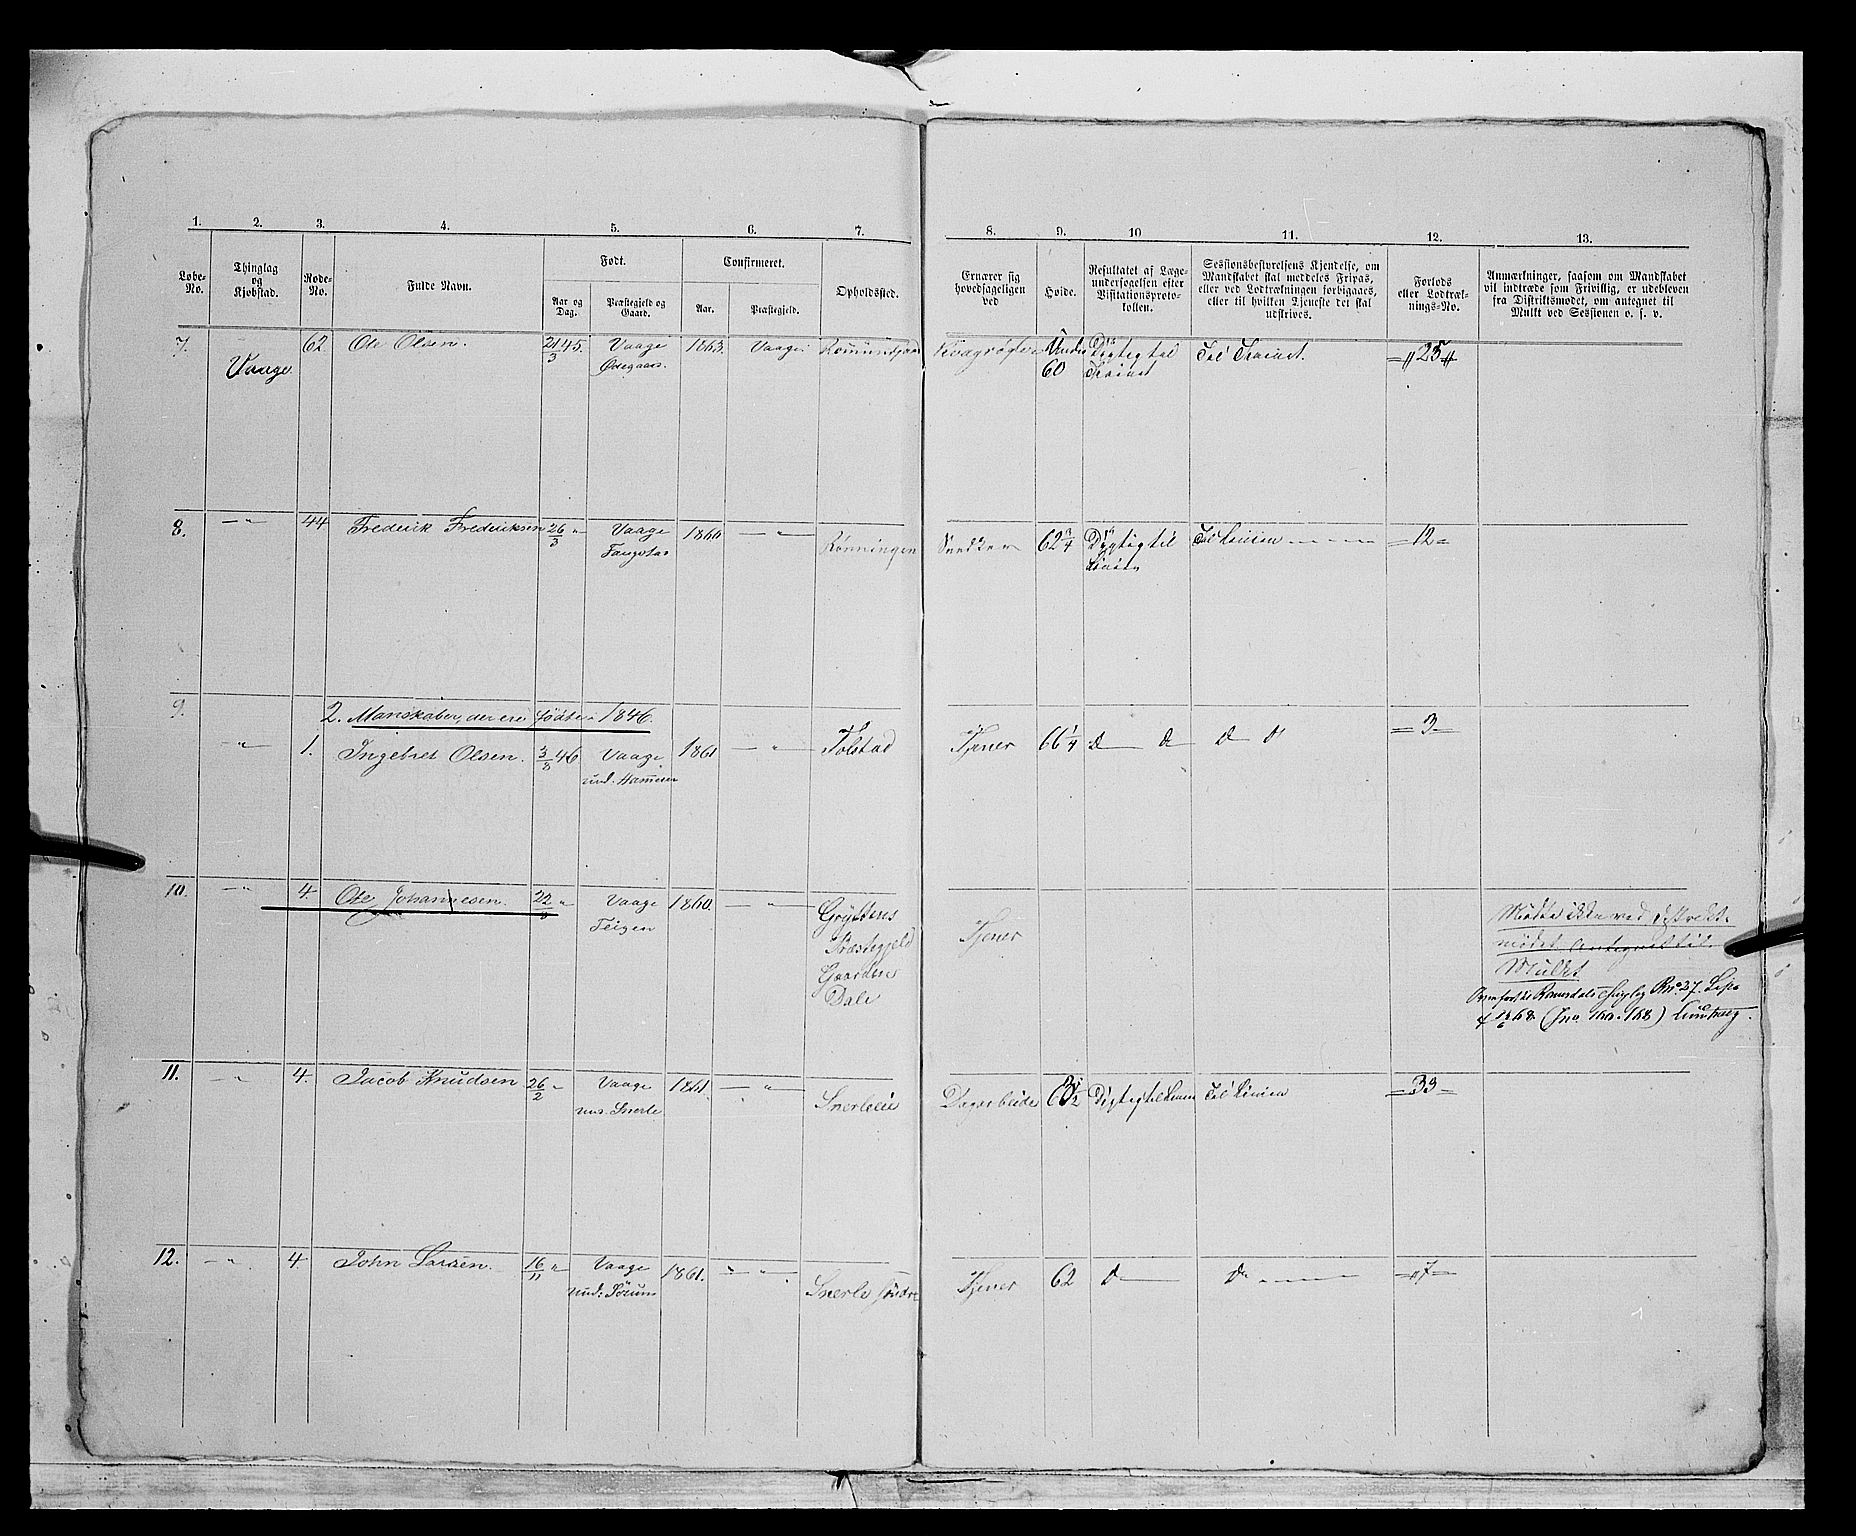 1. 2. 3. 4. 5. 6. 7. 8. 9. 10 11. 12. 13.
Løbe-No.
Thinglag og Kjøbstad.
Rode-No.
Fulde Navn.
Født.
Aar og Dag.
Præstegjeld og Gaard.
Confirmeret.
Aar.
Præstegjeld.
Opholdssted.
Ernærer sig hovedsageligen ved
Høide.
Resultatet af Læge-
undersøgelsen efter
Visitationsproto-
kollen.
Sessionsbestyrelsens Kjendelse, om
Mandskabet skal meddeles Fripas,
eller ved Lodtrækningen forbigaaes,
eller til hvilken Tjeneste det skal
udskrives.
Forlods
eller Lodtræk-
nings-No.
Anmærkninger, saasom om Mandskabet
vil indtræde som Frivillig, er udebleven
fra Distriktsmødet, om antegnet til
Mulkt ved Sessionen o. s. v.
7. Vaage 62. Ole Olsen. 21/3 45. Vaage Ødegaard. 1863. Vaage. Under 60 Dygtig til Trainet Til Trainet. =〃25〃
8. —〃 44 Frederik Frederiksen 26/3 〃 Vaage 1860 —〃— Rønningen Snedker 62 3/4 Dygtig til Linien Til Linien =12=
9. 2. Mandskaber, der ere fødte i 1846.
—〃— 1. Ingebret Olsen. 3/8 46 Vaage und. Hammer 1861 —〃 Tolstad Tjener 66 1/4 D— D D D =3=
10. —〃 4. Ole Johannesen. 22/8 〃 Vaage Teigen 1860. —〃— Gryttens
Præstegjeld
Gaarden
Dale
Tjener
Mødte ikke ved Distrikts-
mødet. Antegnet til
Mulkt.
Overført til Romsdals Thinglag R.no 27.
11. —〃 4. Jacob Knudsen 26/2 〃 Vaage und. Snerle 1861. —〃— Snerleeie Dagarbeide Dygtig til Linien Til Linien =33=
12. —〃 4. John Larsen. 16/11 〃 Vaage und: Sørum 1861. —〃— Snerle søndre Tjener 62 D— D— =〃7=